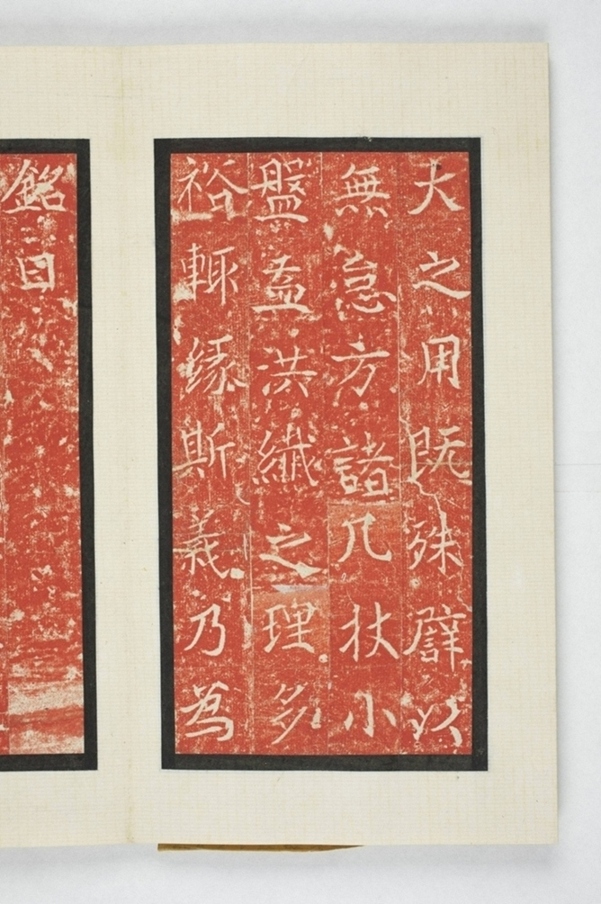 大之用既殊譬以
無怠方諸几杖小
盤盂洪纖之理多
裕輒緣斯義乃為
銘曰